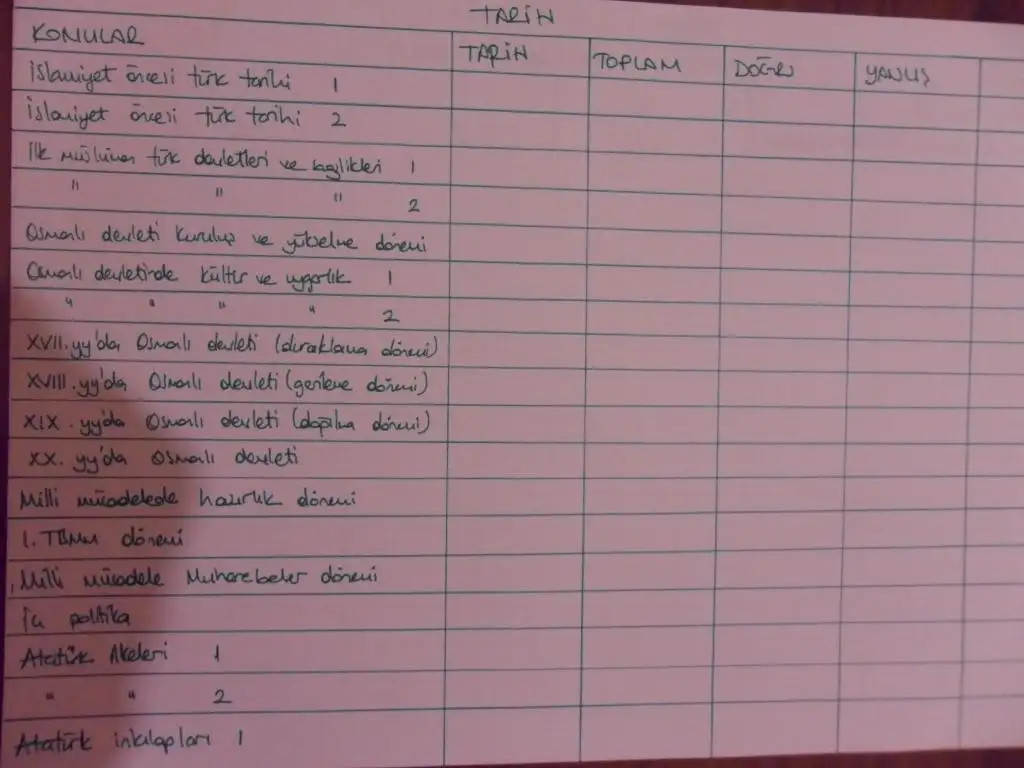 TARİH
KONULAR TARİH TOPLAM DOĞRU YANLIŞ
islamiyet öncesi türk tarihi 1
islamiyet öncesi türk tarihi 2
ilk müslüman türk devletleri ve beylikleri 1
" " " 2
Osmanlı devleti kuruluş ve yükselme dönemi
Osmanlı devletinde kültür ve uygarlık 1
" " " " 2
XVII. yy'da Osmanlı devleti (duraklama dönemi)
XVIII. yy'da Osmanlı devleti (gerileme dönemi)
XIX. yy'da Osmanlı devleti (dağılma dönemi)
XX. yy'da Osmanlı devleti
Milli mücadelede hazırlık dönemi
1. TBMM dönemi
Milli mücadele Muharebeler dönemi
İç politika
Atatürk ilkeleri 1
" " 2
Atatürk inkılapları 1